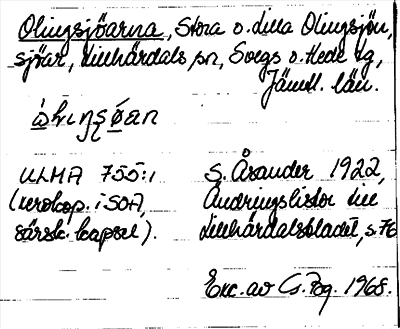 Olingsjöarna, Stora o. Lilla Olingsjön,
sjöar, Linhärdals sn, Svegs o. Hede tg,
Jämtl. län.
ULMA 755:1
(xerokop. i SOA,
särsk. kapsel).
S. Åsander 1922,
Ändringslistor till
Linhärdalsbladet, s. 76
Exc. av G. Rg. 1968.